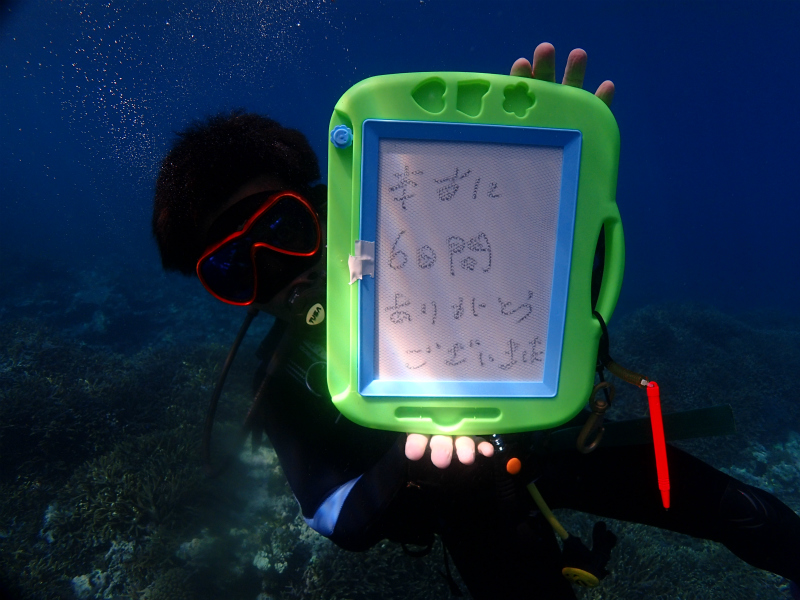 本当に
6日間
ありがとう
ございました
TUSA